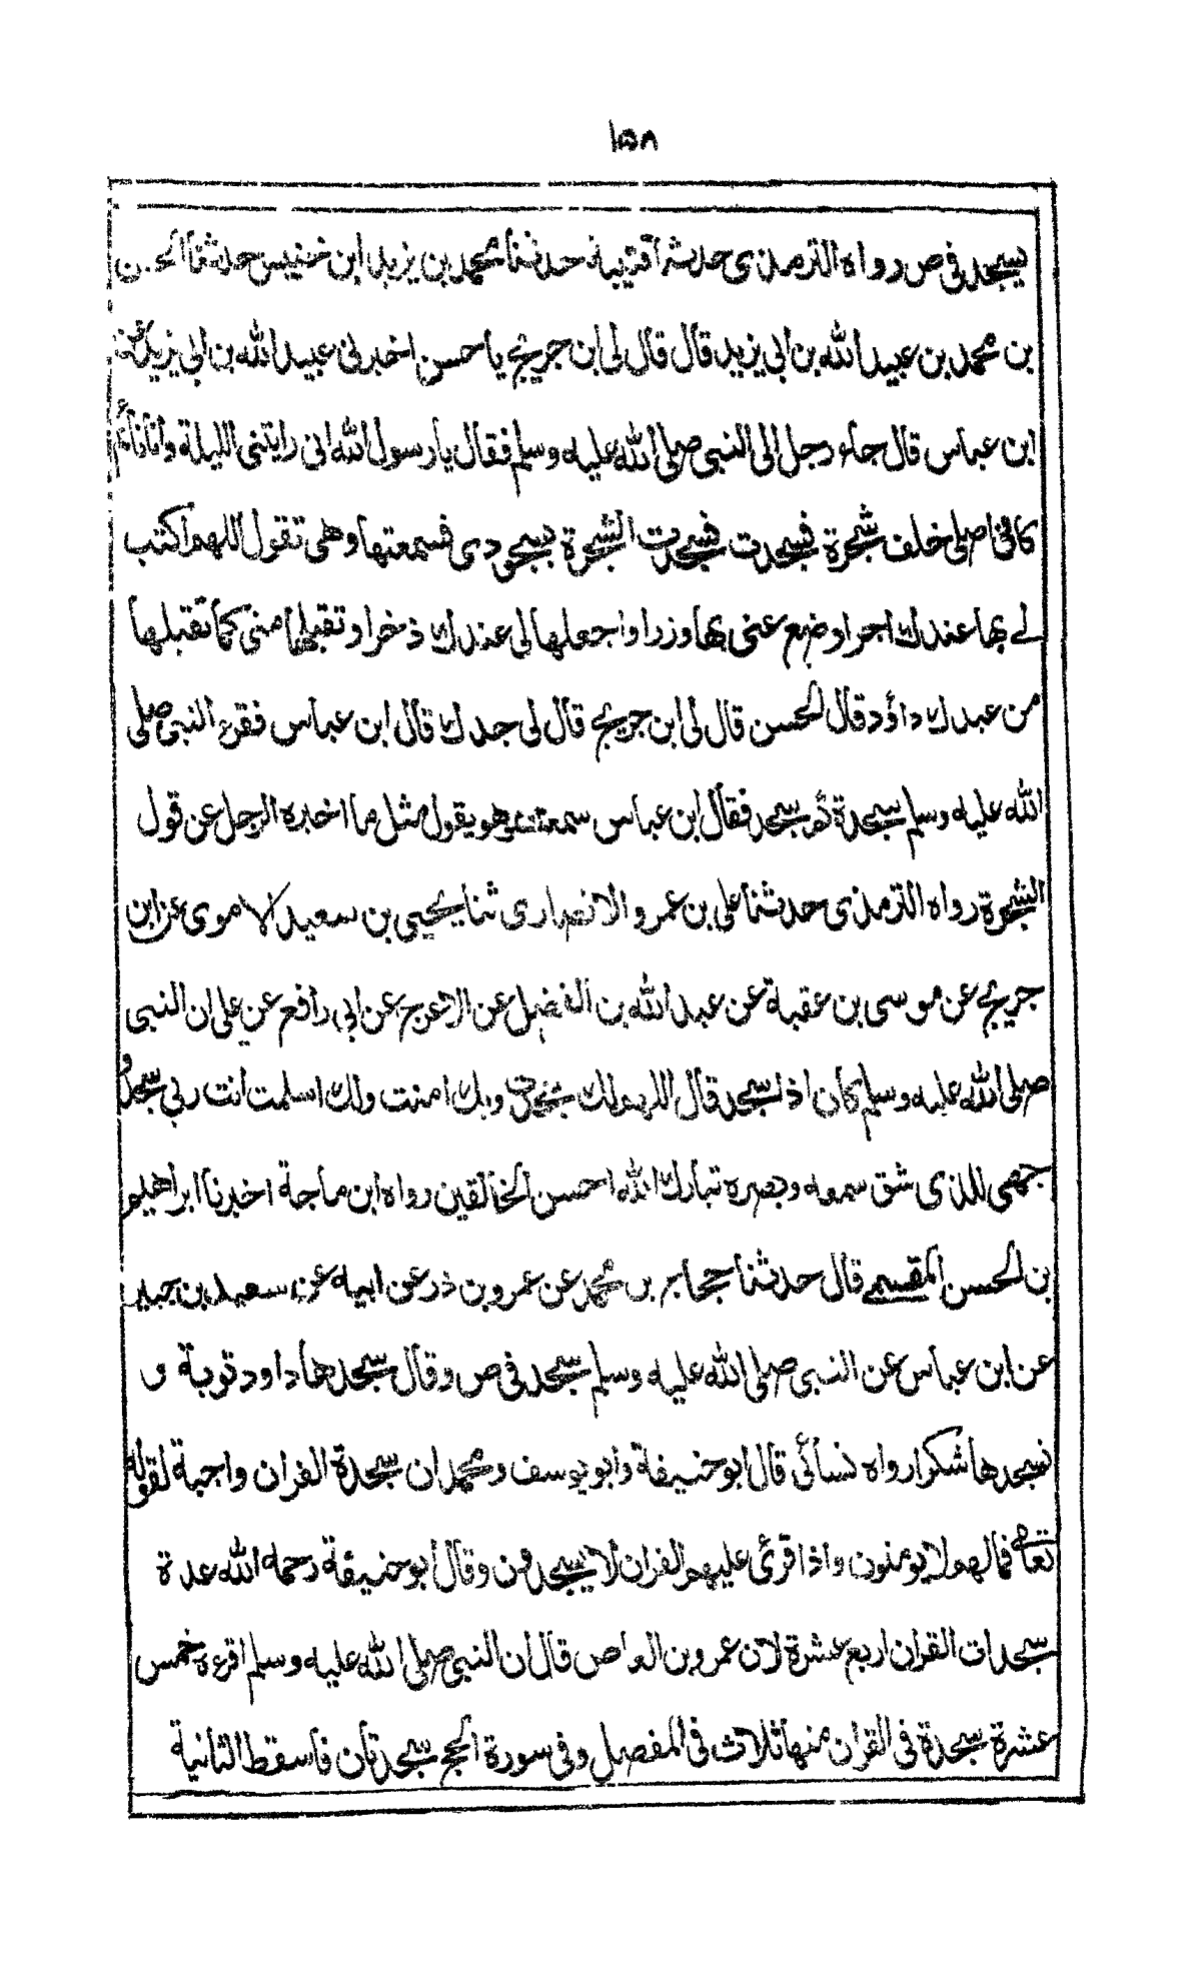 ١٥٨
يسجد فى ص رواه الترمذى حدثنا قتيبة حدثنا محمد بن يزيد ابن خنيس حدثنا الحسن
بن محمد بن عبيد الله بن ابى يزيد قال قال لى ابن جريج يا حسن اخبرنى عبيد الله بن ابى يزيد عن
ابن عباس قال جاء رجل الى النبى صلى الله عليه وسلم فقال يا رسول الله انى رايتنى الليلة وانا نائم
كانى اصلى خلف شجرة فسجدت فسجدت الشجرة بسجودى فسمعتها وهى تقول اللهم اكتب
لے بها عندك اجرا وضع عنى بها وزرا واجعلها لى عندك ذخرا وتقبلها منى كما تقبلتها
من عبدك داؤد قال الحسن قال لى ابن جريج قال لى جدك قال ابن عباس فقرء النبى صلى
الله عليه وسلم سجدة ثم سجد فقال ابن عباس سمعته وهو يقول مثل ما اخبره الرجل عن قول
الشجرة رواه الترمذى حدثنا على بن عمرو الانصارى ثنا يحيى بن سعيد الاموى عن ابن
جريج عن موسى بن عقبة عن عبد الله بن الفضل عن الاعرج عن ابى رافع عن على ان النبى
صلى الله عليه وسلم كان اذا سجد قال اللهم لك سجدت وبك امنت ولك اسلمت انت ربى سجد و
جهى للذى شق سمعه وبصره تبارك الله احسن الخالقين رواه ابن ماجة اخبرنا ابراهيم
بن الحسن المقسمے قال حدثنا حجاج بن محمد عن عمرو بن ذر عن ابيه عن سعيد بن جبير
عن ابن عباس عن النبى صلى الله عليه وسلم سجد فى ص وقال سجدها داود توبة و
نسجدها شكرا رواه نسائى قال ابو حنيفة وابو يوسف ومحمد ان سجدة القران واجبة لقوله
تعالى فما لهم لا يومنون واذا قرئ عليهم القران لا يسجدون وقال ابو حنيفة رحمه الله عدة
سجدات القران اربع عشرة لان عمرو بن العاص قال ان النبى صلى الله عليه وسلم اقرءه خمس
عشرة سجدة فى القران منها ثلاث فى المفصل وفى سورة الحج سجدتان فاسقط الثانية